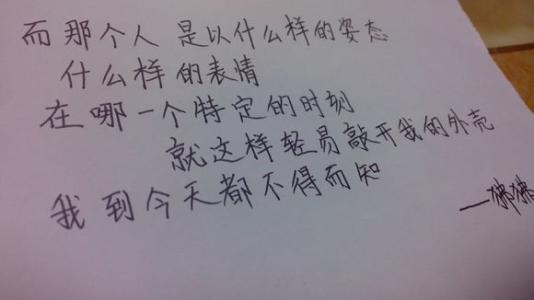 而那个人 是以什么样的姿态
什么样的表情
在哪一个特定的时刻
就这样轻易敲开我的外壳
我到今天都不得而知